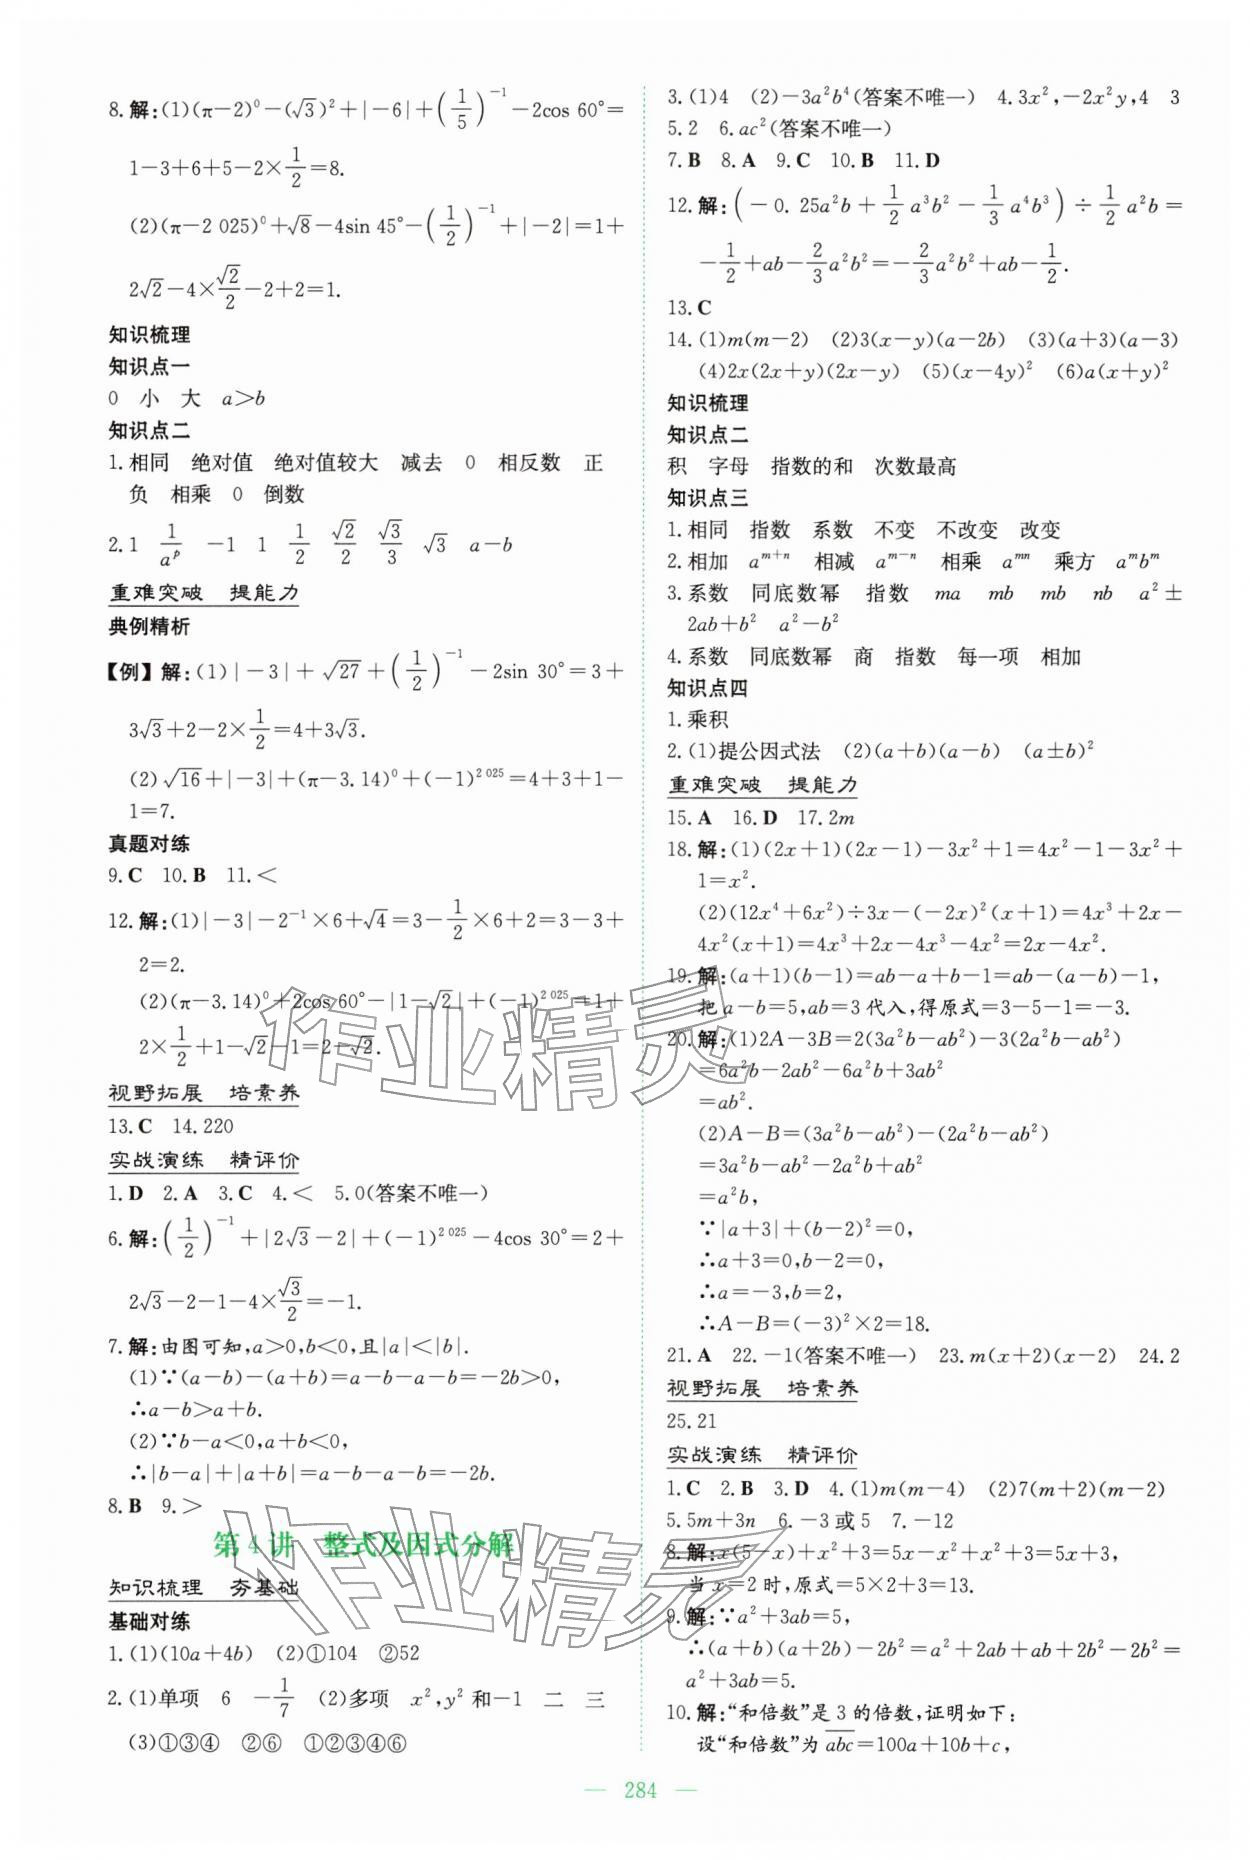 8.解:(1)(π-2)⁰-(√3)²+|-6|+(1/5)⁻¹-2cos 60°=
1-3+6+5-2×1/2=8.
(2)(π-2 025)⁰+√8-4sin 45°-(1/2)⁻¹+|-2|=1+
2√2-4×√2/2-2+2=1.
知识梳理
知识点一
0 小 大 a>b
知识点二
1.相同 绝对值 绝对值较大 减去 0 相反数 正
负 相乘 0 倒数
2.1 1/aᵖ -1 1 1/2 √2/2 √3/3 √3 a-b
重难突破 提能力
典例精析
【例】解:(1)|-3|+√27+(1/2)⁻¹-2sin 30°=3+
3√3+2-2×1/2=4+3√3.
(2)√16+|-3|+(π-3.14)⁰+(-1)²⁰²⁵=4+3+1-
1=7.
真题对练
9.C 10.B 11.<
12.解:(1)|-3|-2⁻¹×6+√4=3-1/2×6+2=3-3+
2=2.
(2)(π-3.14)⁰+2cos60°-|1-√2|+(-1)²⁰²⁵=1+
2×1/2+1-√2-1=2-√2.
视野拓展 培素养
13.C 14.220
实战演练 精评价
1.D 2.A 3.C 4.< 5.0(答案不唯一)
6.解:(1/2)⁻¹+|2√3-2|+(-1)²⁰²⁵-4cos 30°=2+
2√3-2-1-4×√3/2=-1.
7.解:由图可知,a>0,b<0,且|a|<|b|.
(1)∵(a-b)-(a+b)=a-b-a-b=-2b>0,
∴a-b>a+b.
(2)∵b-a<0,a+b<0,
∴|b-a|+|a+b|=a-b-a-b=-2b.
8.B 9.>
第4讲 整式及因式分解
知识梳理 夯基础
基础对练
1.(1)(10a+4b) (2)①104 ②52
2.(1)单项 6 -1/7 (2)多项 x²,y²和-1 二 三
(3)①③④ ②⑥ ①②③④⑥
3.(1)4 (2)-3a²b⁴(答案不唯一) 4.3x²,-2x²y,4 3
5.2 6.ac²(答案不唯一)
7.B 8.A 9.C 10.B 11.D
12.解:(-0.25a²b+1/2a³b²-1/3a⁴b³)÷1/2a²b=
-1/2+ab-2/3a²b²=-2/3a²b²+ab-1/2.
13.C
14.(1)m(m-2) (2)3(x-y)(a-2b) (3)(a+3)(a-3)
(4)2x(2x+y)(2x-y) (5)(x-4y)² (6)a(x+y)²
知识梳理
知识点二
积 字母 指数的和 次数最高
知识点三
1.相同 指数 系数 不变 不改变 改变
2.相加 aᵐ⁺ⁿ 相减 aᵐ⁻ⁿ 相乘 aᵐⁿ 乘方 aᵐbᵐ
3.系数 同底数幂 指数 ma mb mb nb a²±
2ab+b² a²-b²
4.系数 同底数幂 商 指数 每一项 相加
知识点四
1.乘积
2.(1)提公因式法 (2)(a+b)(a-b) (a±b)²
重难突破 提能力
15.A 16.D 17.2m
18.解:(1)(2x+1)(2x-1)-3x²+1=4x²-1-3x²+
1=x².
(2)(12x⁴+6x²)÷3x-(-2x)²(x+1)=4x³+2x-
4x²(x+1)=4x³+2x-4x³-4x²=2x-4x².
19.解:(a+1)(b-1)=ab-a+b-1=ab-(a-b)-1,
把a-b=5,ab=3代入,得原式=3-5-1=-3.
20.解:(1)2A-3B=2(3a²b-ab²)-3(2a²b-ab²)
=6a²b-2ab²-6a²b+3ab²
=ab².
(2)A-B=(3a²b-ab²)-(2a²b-ab²)
=3a²b-ab²-2a²b+ab²
=a²b,
∵|a+3|+(b-2)²=0,
∴a+3=0,b-2=0,
∴a=-3,b=2,
∴A-B=(-3)²×2=18.
21.A 22.-1(答案不唯一) 23.m(x+2)(x-2) 24.2
视野拓展 培素养
25.21
实战演练 精评价
1.C 2.B 3.D 4.(1)m(m-4) (2)7(m+2)(m-2)
5.5m+3n 6.-3或5 7.-12
8.解:x(5-x)+x²+3=5x-x²+x²+3=5x+3,
当x=2时,原式=5×2+3=13.
9.解:∵a²+3ab=5,
∴(a+b)(a+2b)-2b²=a²+2ab+ab+2b²-2b²=
a²+3ab=5.
10.解:“和倍数”是3的倍数,证明如下:
设“和倍数”为a̅b̅c̅=100a+10b+c,
— 284 —
作业精灵
作业精灵